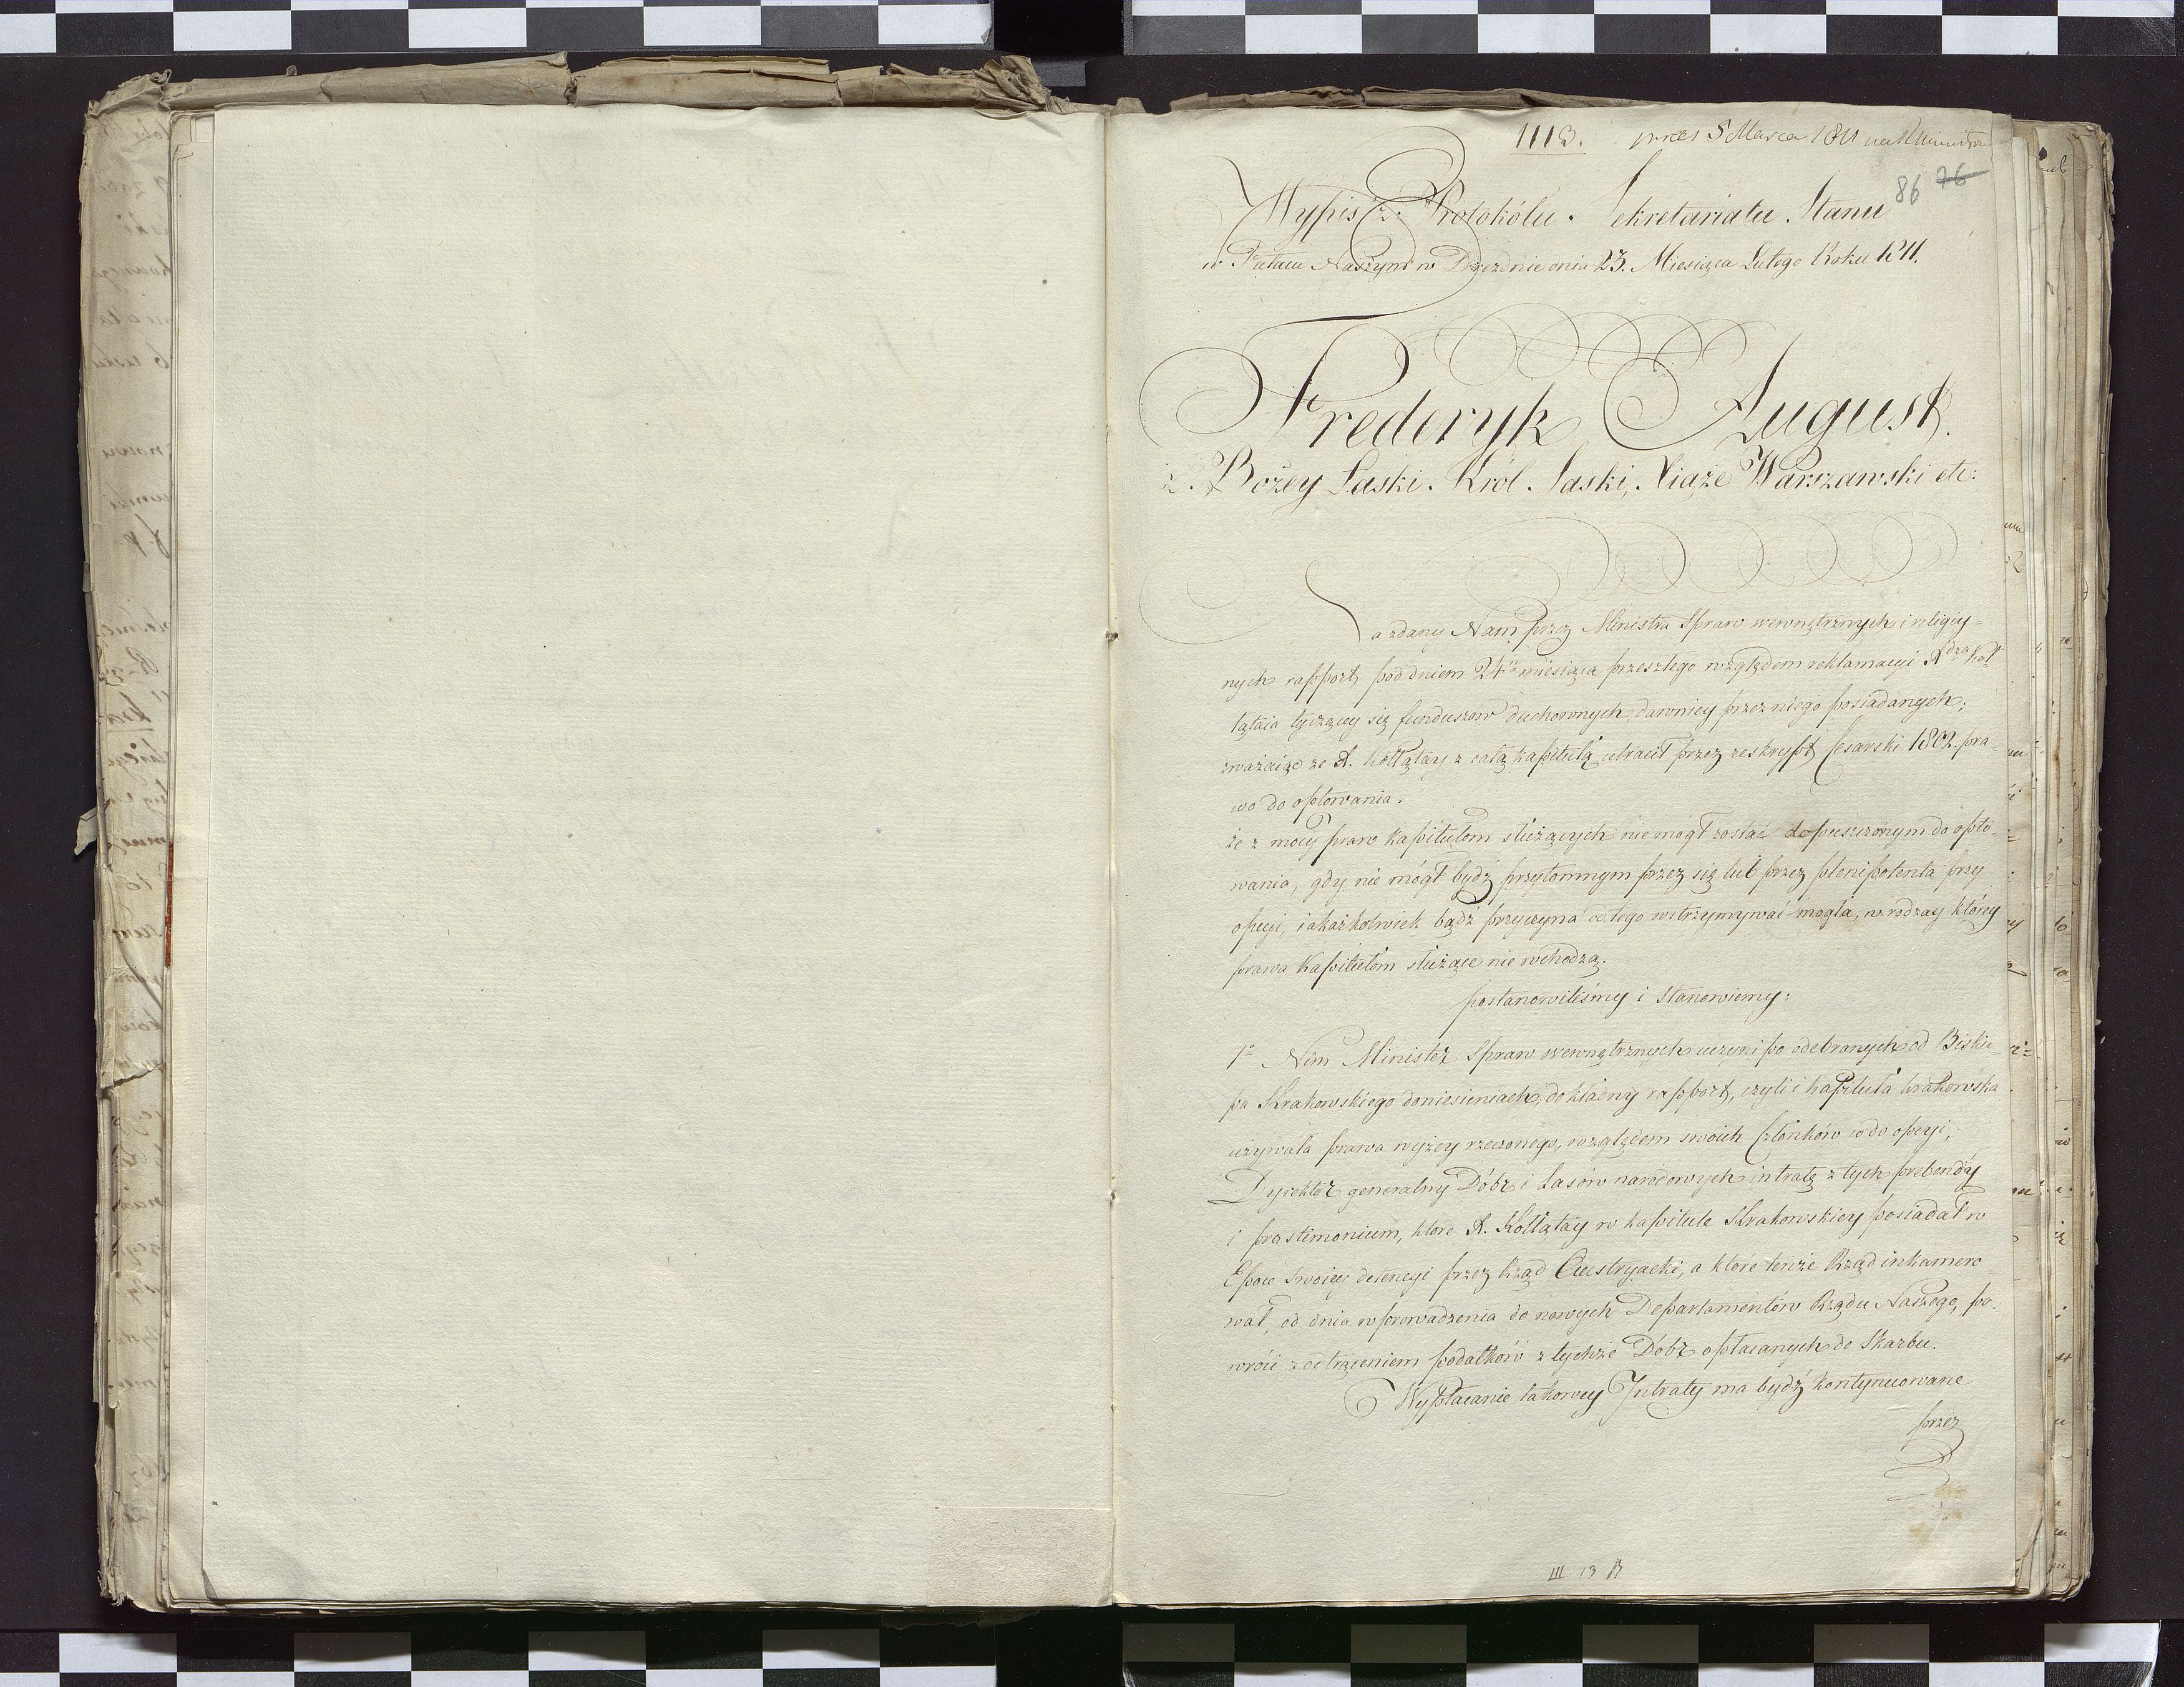 1113. 5 Marca 1811
86 76
Wypis z Protokółu Sekretariatu Stanu
w Pałacu Naszym w Dreznie dnia 23. Miesiąca Lutego Roku 1811.
Frederyk August.
z Bożey Łaski Król Saski, Xiąże Warszawski etc:
Na zdany Nam przez Ministra Spraw wewnętrznych i religiy-
nych rapport pod dniem 24º miesiąca przeszłego względem reklamacyi Xdza Koł-
łątaia tyczącey się funduszów duchownych, dawniey przez niego posiadanych;
zważaiąc że X. Kołłątay z całą kapitułą utracił przez reskrypt Cesarski 1802. pra-
wo do optowania.
że z mocy praw kapitułom służących nie mogł zostać dopuszczonym do opto-
wania, gdy nie mógł bydź przytomnym przez się lub przez plenipotenta przy
opcyi, iakażkolwiek bądź przyczyna od tego wstrzymywać mogła, w rodzay którey
prawa kapitułom służące nie wchodzą.
postanowiliśmy i stanowiemy:
1º Nim Minister Spraw wewnętrznych uczyni po odebranych od Bisku-
pa Krakowskiego doniesieniach, dokładny rapport, czyli i kapituła krakowska
używała prawa wyżey rzeczonego, względem swoich Członków co do opcyi,
Dyrektor generalny Dóbr i Lasów narodowych intratę z tych prebendy
i prestimonium, które X. Kołłątay w kapitule Krakowskiey posiadał w
Epoce swoiey detencyi przez Rząd Austryacki, a które tenże Rząd inkamero-
wał, od dnia wprowadzenia do nowych Departamentów Rządu Naszego, po-
wróci z odtrąceniem podatków z tychże Dóbr opłacanych do Skarbu.
Wypłacanie takowey Intraty ma bydź kontynuowane
przez
III 13 A